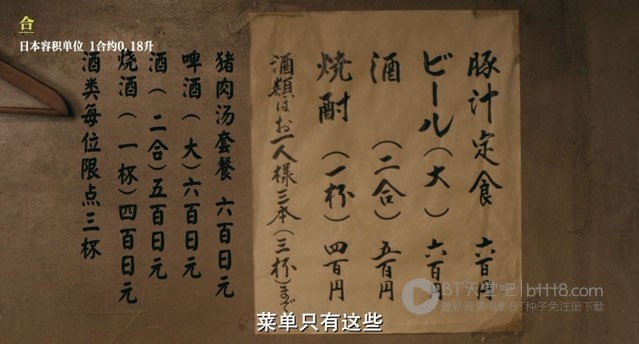 合
日本容积单位 1合约0.18升
豚汁定食 六百円
ビール（大） 六百円
酒（二合） 五百円
焼酎（一杯） 四百円
酒類はお一人様三本（三杯）まで
猪肉汤套餐 六百日元
啤酒（大）六百日元
酒（二合）五百日元
烧酒（一杯）四百日元
酒类每位限点三杯
BT天堂吧 | bttt8.com
最新高清电影BT种子免注册下载
菜单只有这些